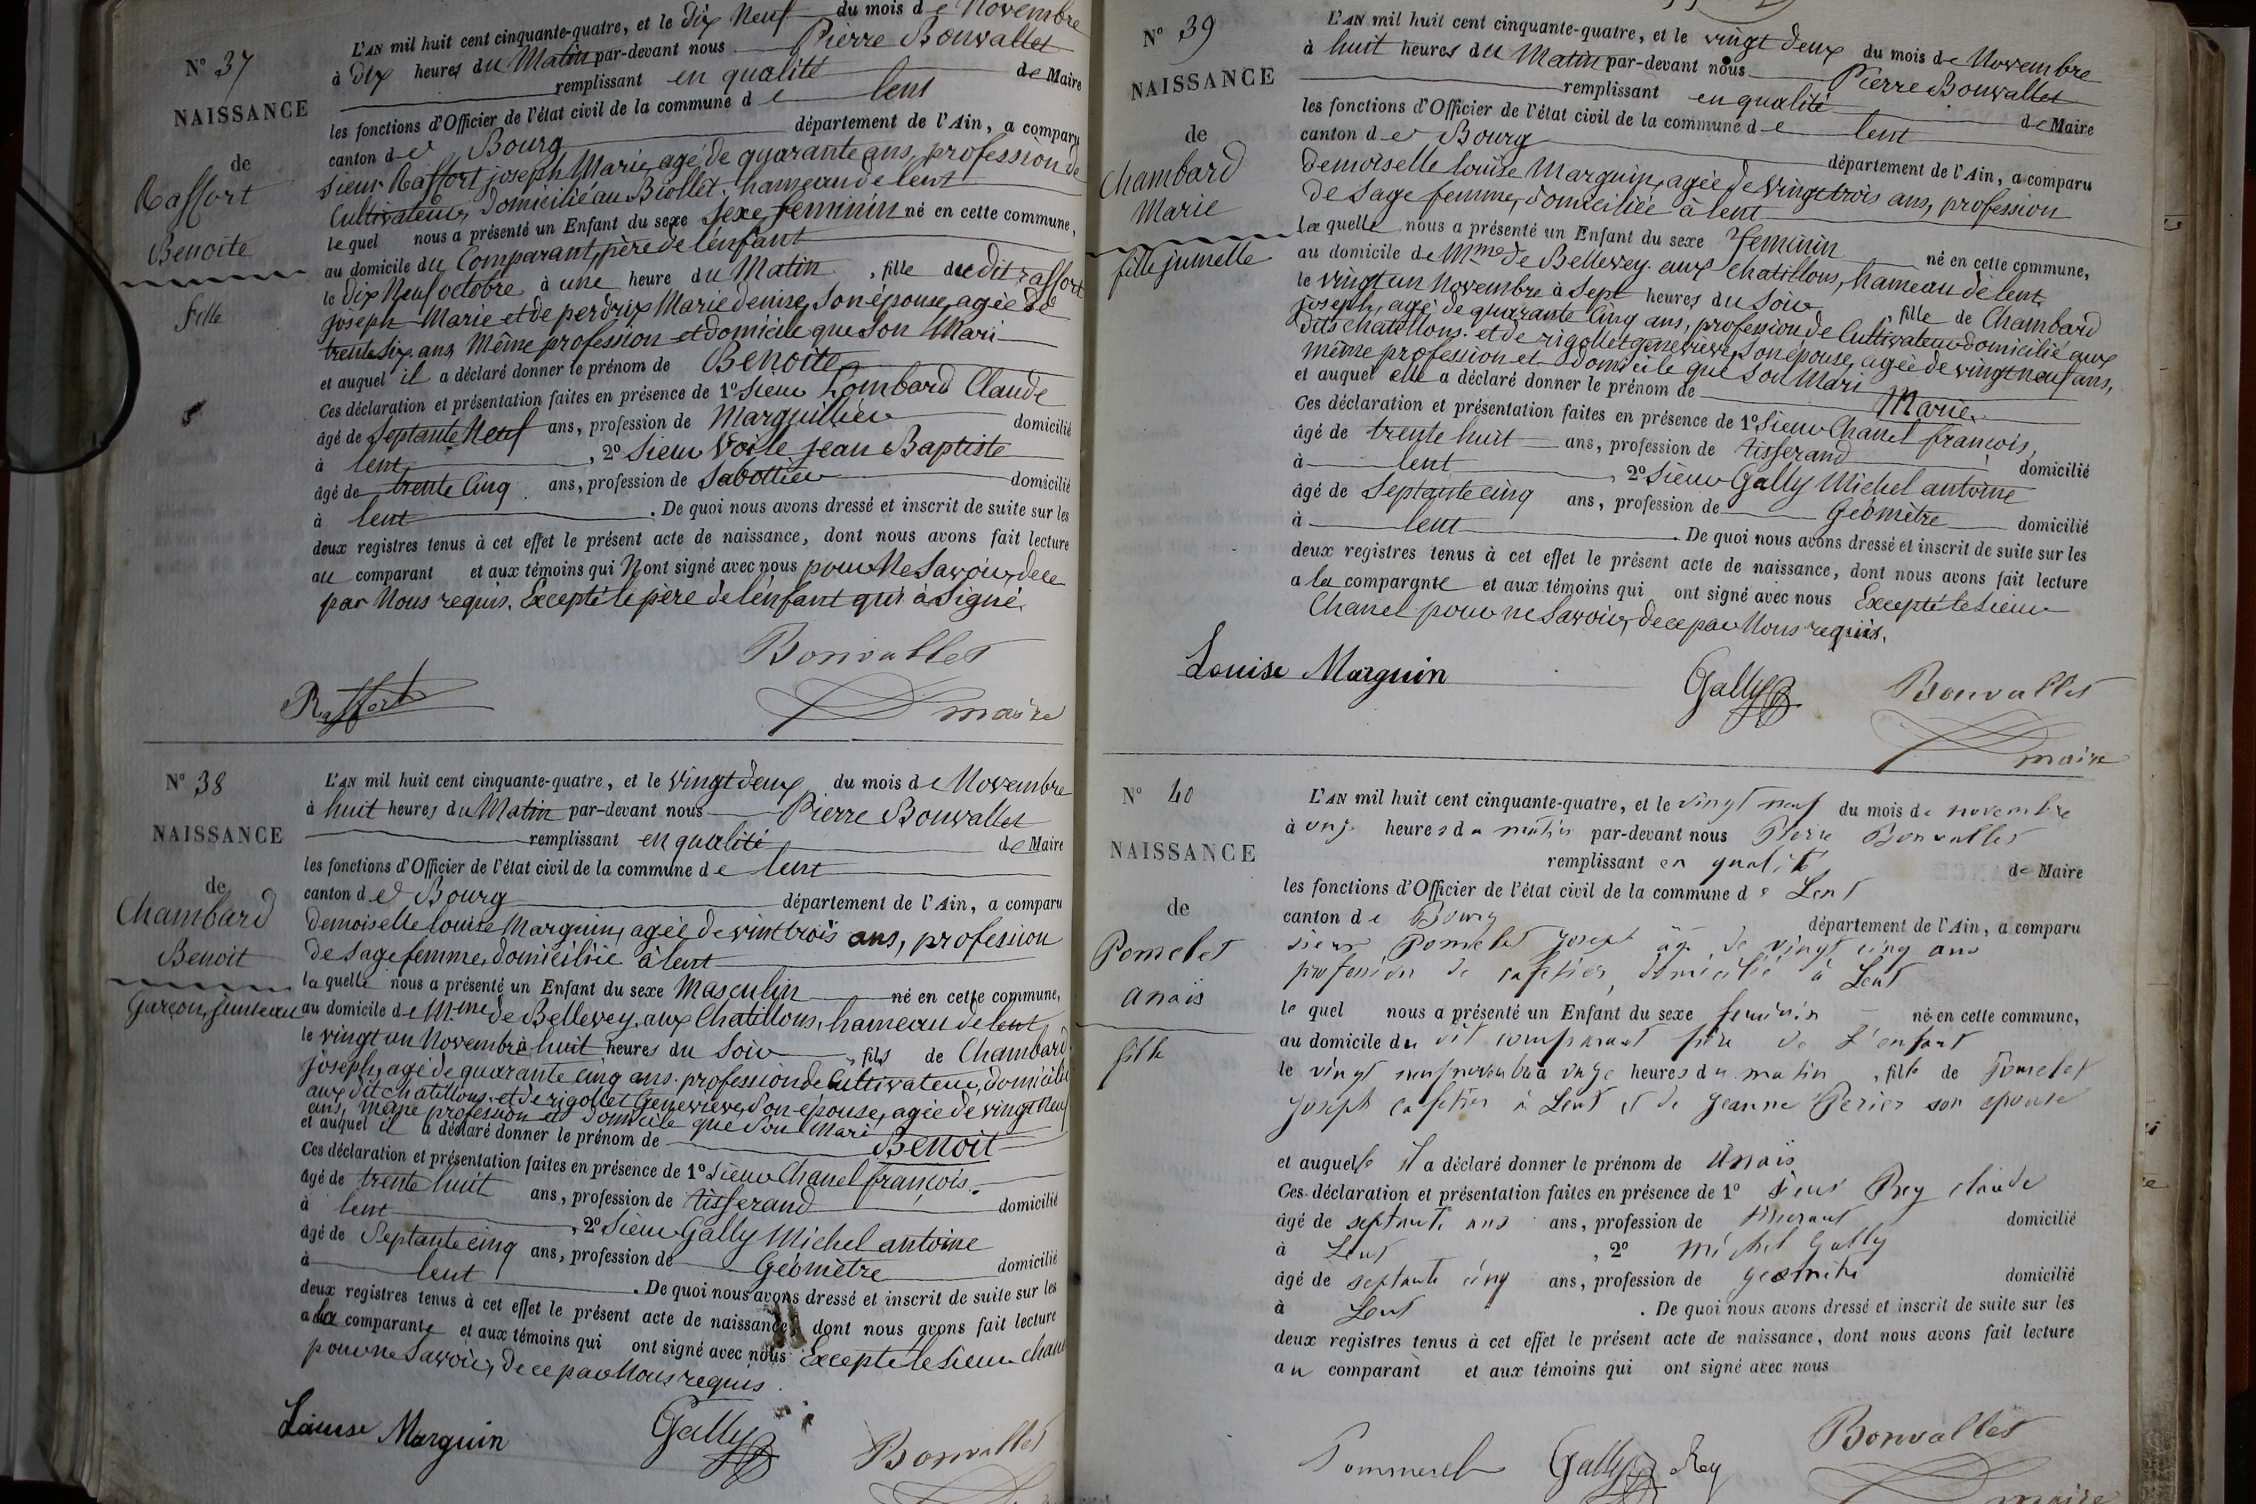 N° 37
NAISSANCE
de
Raffort
Benoite
fille
L'AN mil huit cent cinquante-quatre, et le dix Neuf du mois de Novembre
à dix heures du Matin par-devant nous Pierre Bonvallet
remplissant en qualité de Maire
les fonctions d'Officier de l'état civil de la commune de lent
canton de Bourg département de l'Ain, a comparu
sieur Raffort joseph Marie, agé de quarante ans, profession de
Cultivateur, domicilié au Biollet. hameau de lent
le quel nous a présenté un Enfant du sexe sexe feminin né en cette commune,
au domicile du Comparant, père de l'enfant
le dix Neuf octobre à une heure du Matin, fille dudit raffort
joseph Marie et de perdrix Marie denise, son épouse, agée de
trente six ans, Même profession et domicile que son Mari
et auquel il a déclaré donner le prénom de Benoite
Ces déclaration et présentation faites en présence de 1° Sieur Lombard Claude
âgé de Septante Neuf ans, profession de Marguillier domicilié
à lent, 2° Sieur Voisle jean Baptiste
âgé de trente Cinq ans, profession de Sabottier domicilié
à lent. De quoi nous avons dressé et inscrit de suite sur les
deux registres tenus à cet effet le présent acte de naissance, dont nous avons fait lecture
au comparant et aux témoins qui N'ont signé avec nous pour Ne Savoir, de ce
par Nous requis. Excepté le père de l'enfant qui à Signé.
Bonvallet
Raffort
maire
N° 38
NAISSANCE
de
Chambard
Benoit
Garçon, jumeau
L'AN mil huit cent cinquante-quatre, et le vingt deux du mois de Novembre
à huit heures du Matin par-devant nous Pierre Bonvallet
remplissant en qualité de Maire
les fonctions d'Officier de l'état civil de la commune de lent
canton de Bourg département de l'Ain, a comparu
demoiselle louise Marguin, agée de vint trois ans, profession
de sage femme, domiciliée à lent
la quelle nous a présenté un Enfant du sexe Masculin né en cette commune,
au domicile de Mme de Bellevey, aux Chatillons, hameau de lent
le vingt un Novembre à huit heures du Soir, fils de Chambard
joseph, agé de quarante cinq ans. profession de Cultivateur, domicilié
aux dit chatillons. et de rigollet Genevieve, son épouse, agée de vingt Neuf
ans, même profession et domicile que son Mari
et auquel il a déclaré donner le prénom de Benoit
Ces déclaration et présentation faites en présence de 1° Sieur Chanel françois.
âgé de trente huit ans, profession de tisserand domicilié
à lent, 2° Sieur Gally Michel antoine
âgé de Septante cinq ans, profession de Géomètre domicilié
à lent. De quoi nous avons dressé et inscrit de suite sur les
deux registres tenus à cet effet le présent acte de naissance, dont nous avons fait lecture
a la comparante et aux témoins qui ont signé avec nous Excepté le Sieur chanel
pour ne Savoir, de ce par Nous requis.
Louise Marguin Gally Bonvallet
N° 39
NAISSANCE
de
Chambard
Marie
fille jumelle
L'AN mil huit cent cinquante-quatre, et le vingt deux du mois de Novembre
à huit heures du Matin par-devant nous Pierre Bonvallet
remplissant en qualité de Maire
les fonctions d'Officier de l'état civil de la commune de lent
canton de Bourg département de l'Ain, a comparu
demoiselle louise Marguin, agée de vingt trois ans, profession
de sage femme, domiciliée à lent
la quelle nous a présenté un Enfant du sexe feminin né en cette commune,
au domicile de Mme de Bellevey. aux Chatillons, hameau de lent,
le vingt un Novembre à Sept heures du Soir, fille de Chambard
joseph, agé de quarante Cinq ans, profession de Cultivateur domicilié aux
dits chatillons. et de rigollet genevieve, son épouse, agée de vingt neuf ans,
même profession et domicile que son Mari
et auquel elle a déclaré donner le prénom de Marie.
Ces déclaration et présentation faites en présence de 1° Sieur Chanel françois,
âgé de trente huit ans, profession de tisserand domicilié
à lent, 2° Sieur Gally Michel antoine
âgé de Septante cinq ans, profession de Géomètre domicilié
à lent. De quoi nous avons dressé et inscrit de suite sur les
deux registres tenus à cet effet le présent acte de naissance, dont nous avons fait lecture
a la comparante et aux témoins qui ont signé avec nous Excepté le sieur
Chanel pour ne Savoir, de ce par Nous requis.
Louise Marguin Gally Bonvallet
maire
N° 40
NAISSANCE
de
Pomelet
anaïs
fille
L'AN mil huit cent cinquante-quatre, et le vingt neuf du mois de novembre
à onze heures du matin par-devant nous Pierre Bonvallet
remplissant en qualité de Maire
les fonctions d'Officier de l'état civil de la commune de Lent
canton de Bourg département de l'Ain, a comparu
sieur Pomelet Joseph âgé de vingt cinq ans
profession de cafetier, domicilié à Lent
le quel nous a présenté un Enfant du sexe feminin né en cette commune,
au domicile du dit comparant père de L'enfant
le vingt neuf novembre à onze heures du matin, fille de Pomelet
Joseph cafetier à Lent et de Jeanne Perier son épouse
et auquelle il a déclaré donner le prénom de Anaïs
Ces déclaration et présentation faites en présence de 1° sieur Rey claude
âgé de septante ans ans, profession de domicilié
à Lent, 2° Michel Gally
âgé de septante cinq ans, profession de géomètre domicilié
à Lent. De quoi nous avons dressé et inscrit de suite sur les
deux registres tenus à cet effet le présent acte de naissance, dont nous avons fait lecture
au comparant et aux témoins qui ont signé avec nous
Gally Rey Bonvallet
maire